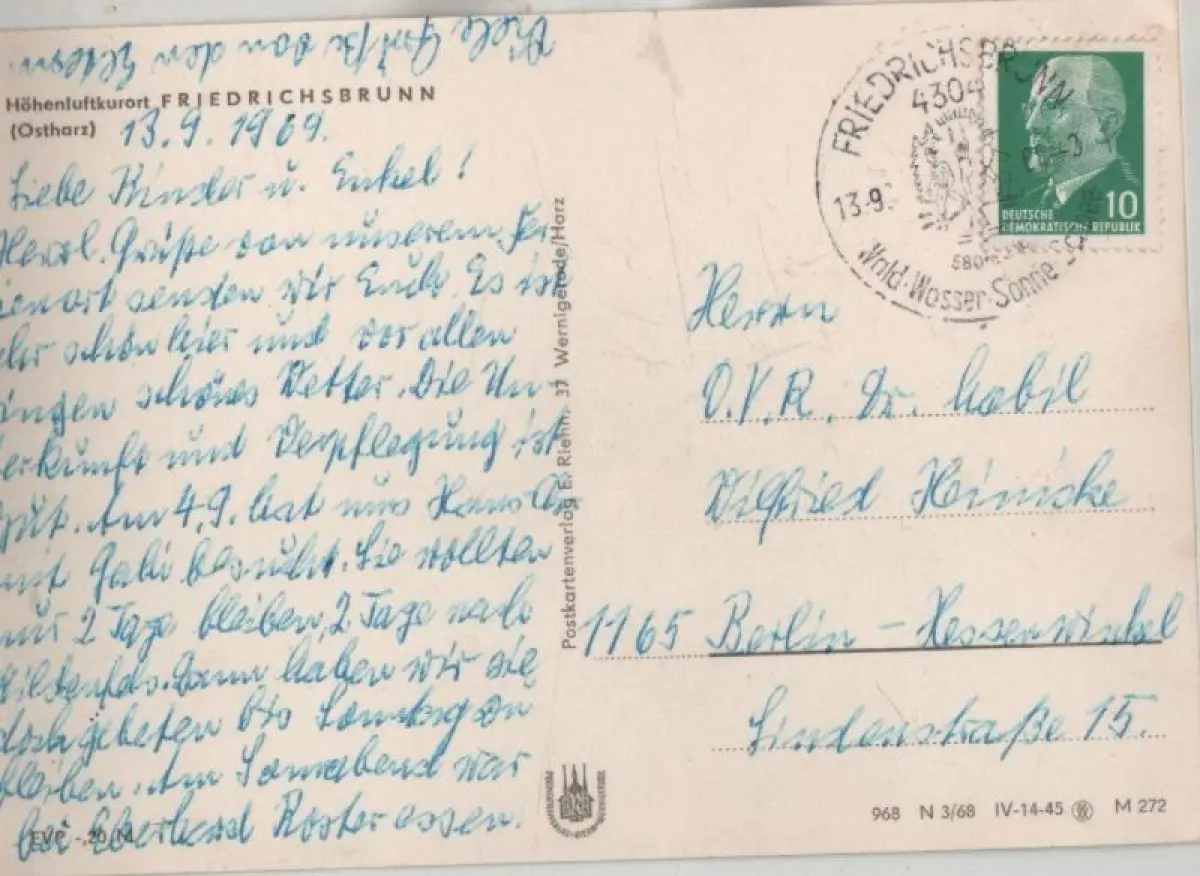 Viele Grüße von den Eltern.
Höhenluftkurort FRIEDRICHSBRUNN
(Ostharz) 13.9.1969.
Liebe Kinder u. Enkel!
Herzl. Grüße von unserem Fer-
ienort senden wir Euch. Es ist
sehr schön hier und vor allen
Dingen schönes Wetter. Die Un-
terkunft und Verpflegung ist
gut. Am 4.9. hat uns Hans
mit Gabi besucht. Sie wollten
nur 2 Tage bleiben, 2 Tage nach
Dann haben wir sie
doch gebeten bis Sonntag zu
bleiben. Am Sonnabend war
bei Eberhard Roster essen.
EVP -,20 M
Postkartenverlag E. Riehn, 37 Wernigerode/Harz
FRIEDRICHSBRUNN
4304
13.9.
580
Wald·Wasser·Sonne
DEUTSCHE
DEMOKRATISCHE REPUBLIK
10
Herrn
O.V.R. Dr. habil
Wilfried Heinicke
1165 Berlin – Hessenwinkel
Lindenstraße 15.
968 N 3/68 IV-14-45 M 272